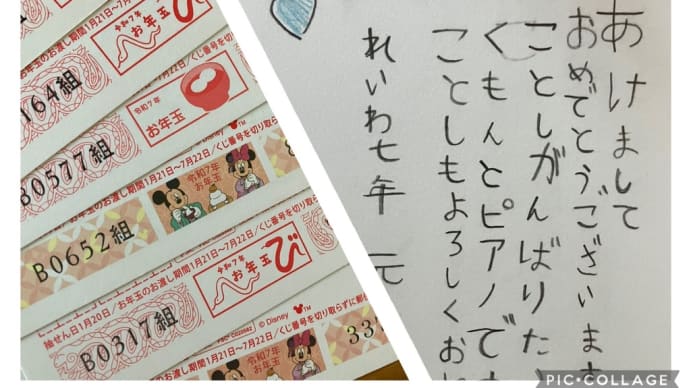 164組
令和7年
お年玉
のお渡し期間1月21日~7月22日/くじ番号を切り取らず
令和7年
お年玉
B0577組
お年玉のお渡し期間1月21日~7月22日/くじ番号を切り取ら
© Disney
令和7年
お年玉
B0652組
抽せん日1月20日/お年玉のお渡し期間1月21日~7月22日/くじ番号を切り取らずに
令和7年
お年玉
び
B0317組
© Disney
令和7年
お年玉
333
あけまして
おめでとうございます
ことしがんばりた
くもんとピアノで
ことしもよろしくお
れいわ七年 元
PIC•COLLAGE